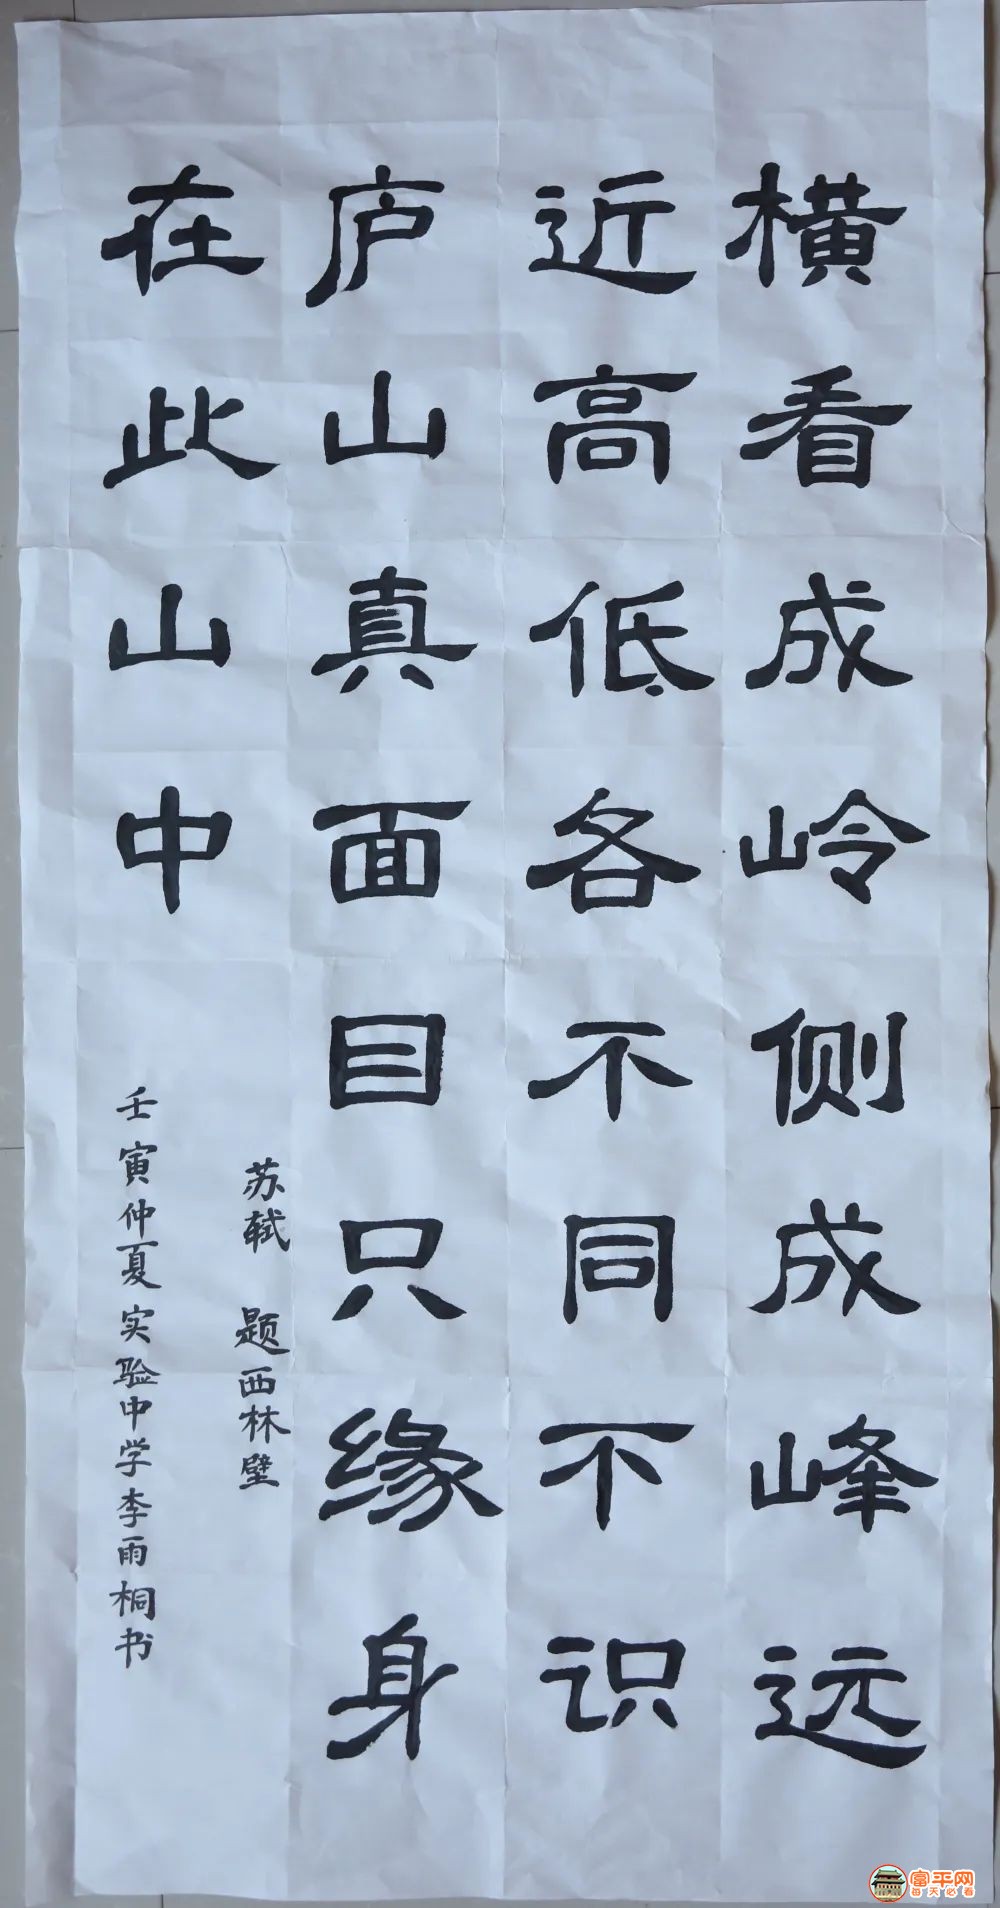 横看成岭侧成峰远
近高低各不同不识
庐山真面目只缘身
在此山中
苏轼 题西林壁
壬寅仲夏实验中学李雨桐书
富平网
每天必看